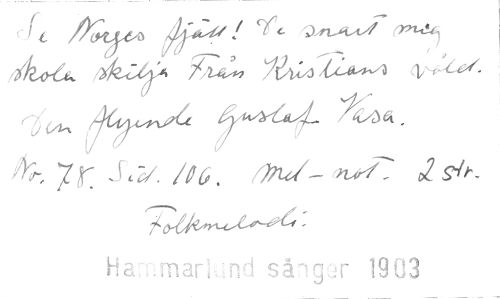 Se Norges fjäll! De snart mig
skola skilja Från Kristians våld.
Den flyende Gustaf Vasa.
Nr. 78. Sid. 106. Mel-not. 2 str.
Folkmelodi.
Hammarlund sånger 1903